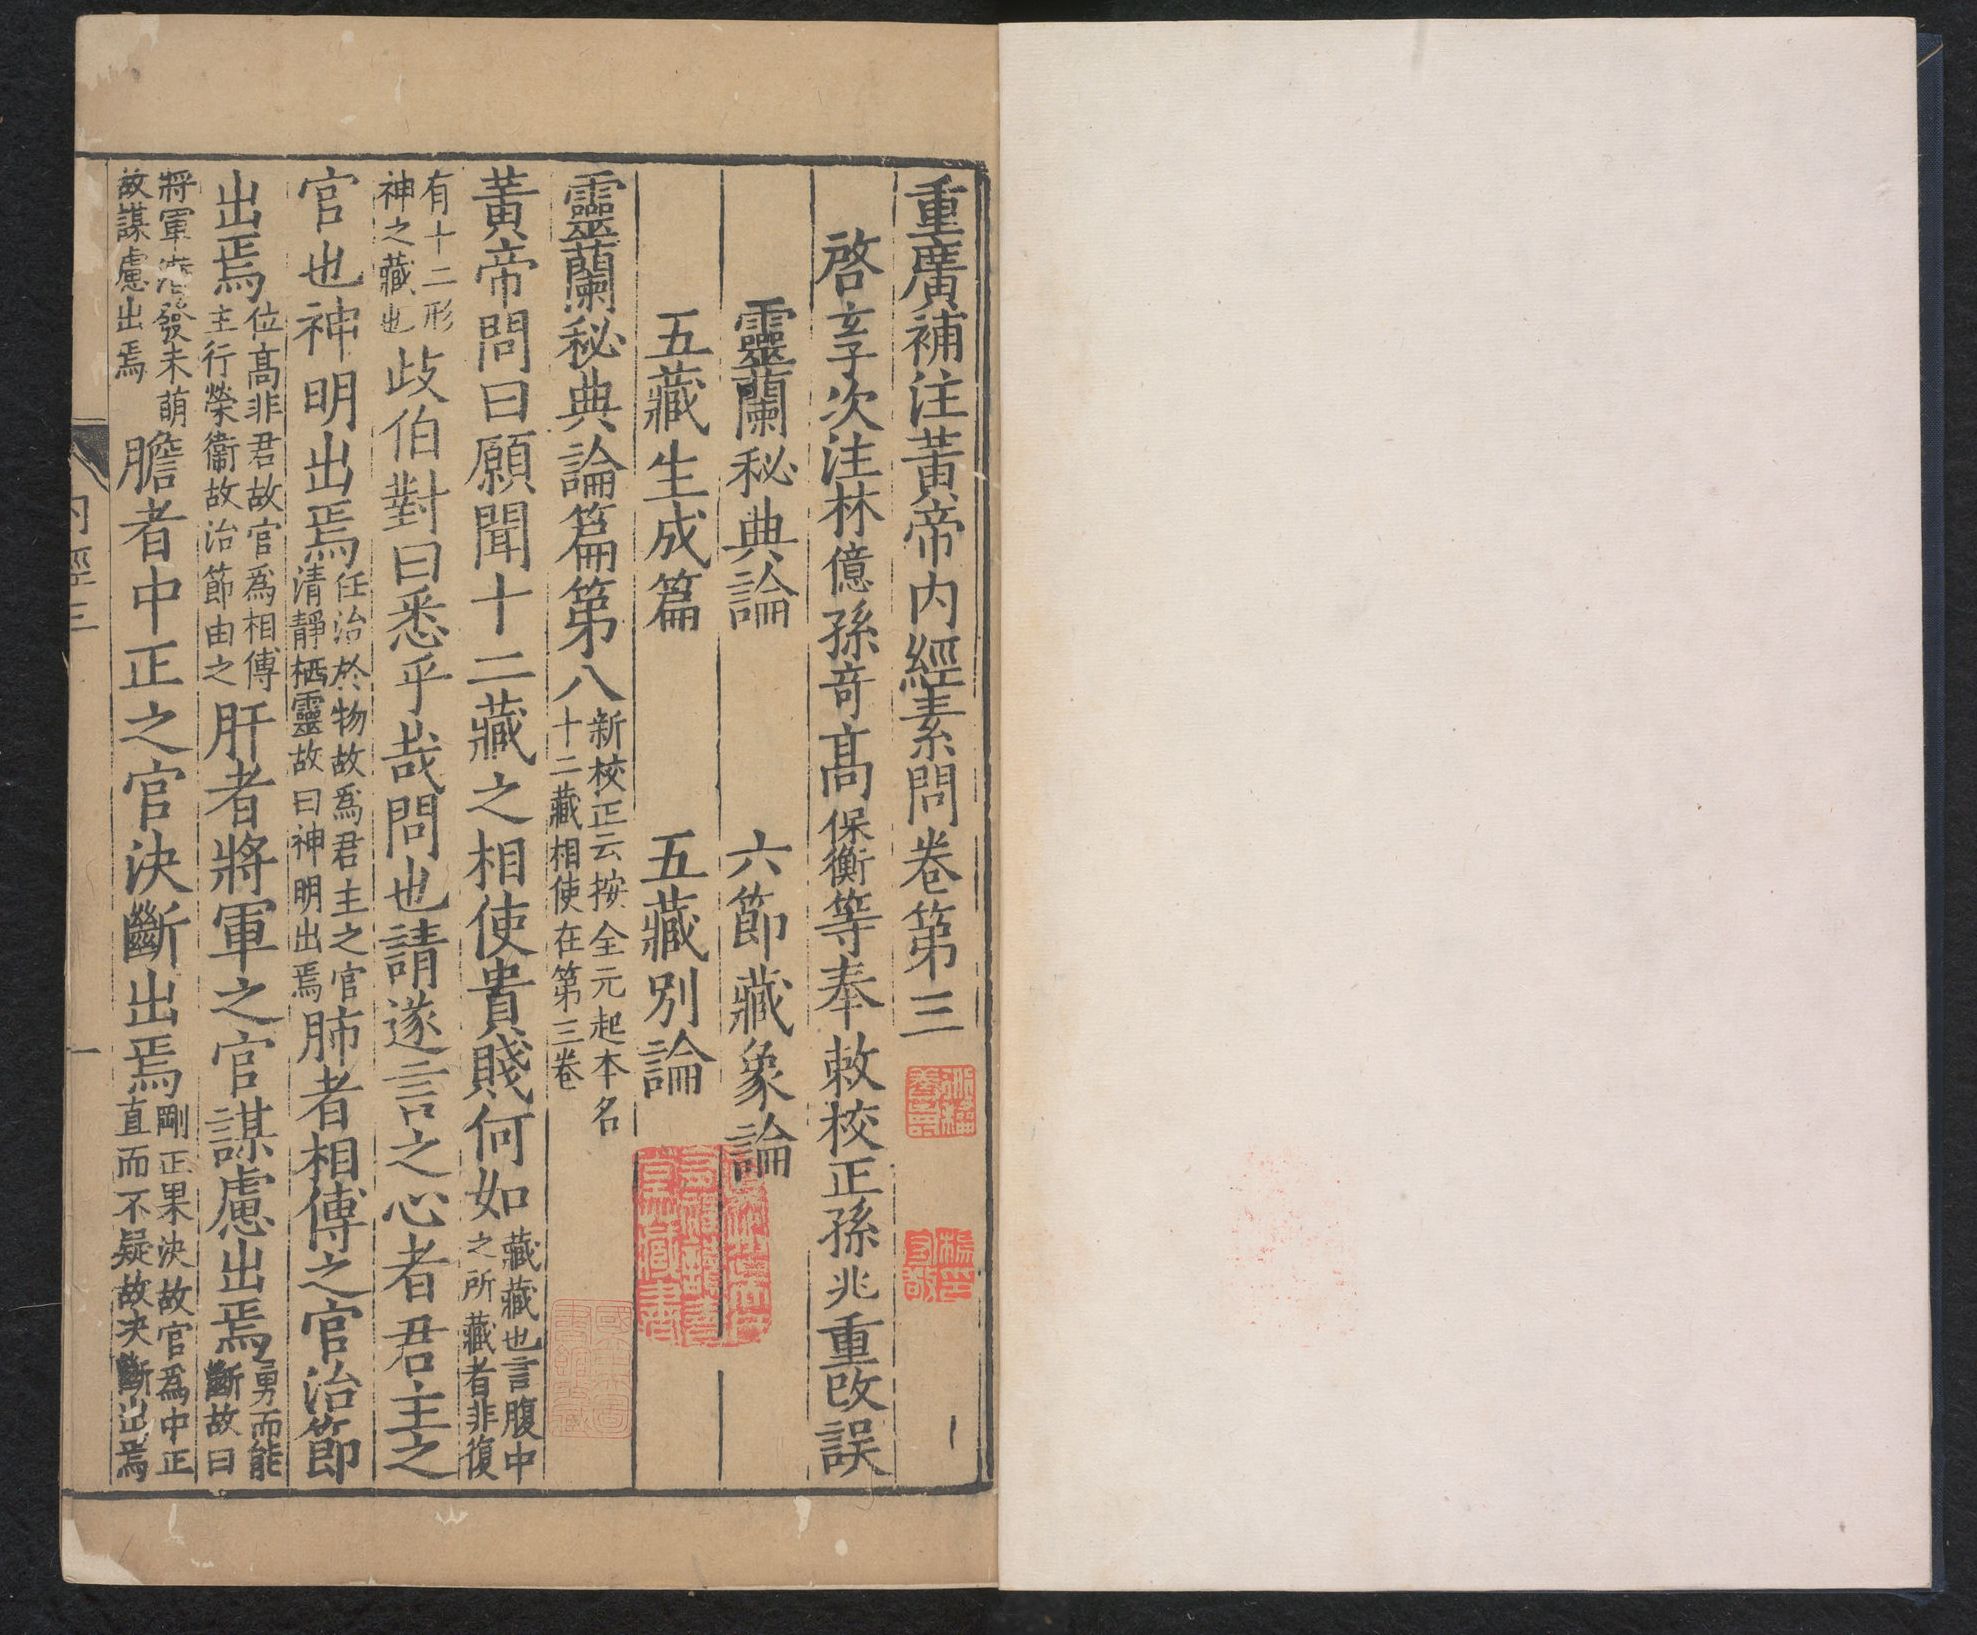 重廣補注黃帝内經素問卷第三
啓玄子次注林億孫奇高保衡等奉敕校正孫兆重改誤
靈蘭秘典論　六節藏象論
五藏生成篇　五藏別論
靈蘭秘典論篇第八新校正云按全元起本名十二藏相使在第三卷
黃帝問曰願聞十二藏之相使貴賤何如藏藏也言腹中之所藏者非復
有十二形神之藏也歧伯對曰悉乎哉問也請遂言之心者君主之
官也神明出焉任治於物故爲君主之官清靜栖靈故曰神明出焉肺者相傅之官治節
出焉位高非君故官爲相傅主行榮衛故治節由之肝者將軍之官謀慮出焉勇而能斷故曰
將軍潛發未萌故謀慮出焉膽者中正之官決斷出焉剛正果決故官爲中正直而不疑故決斷出焉
内經三
一